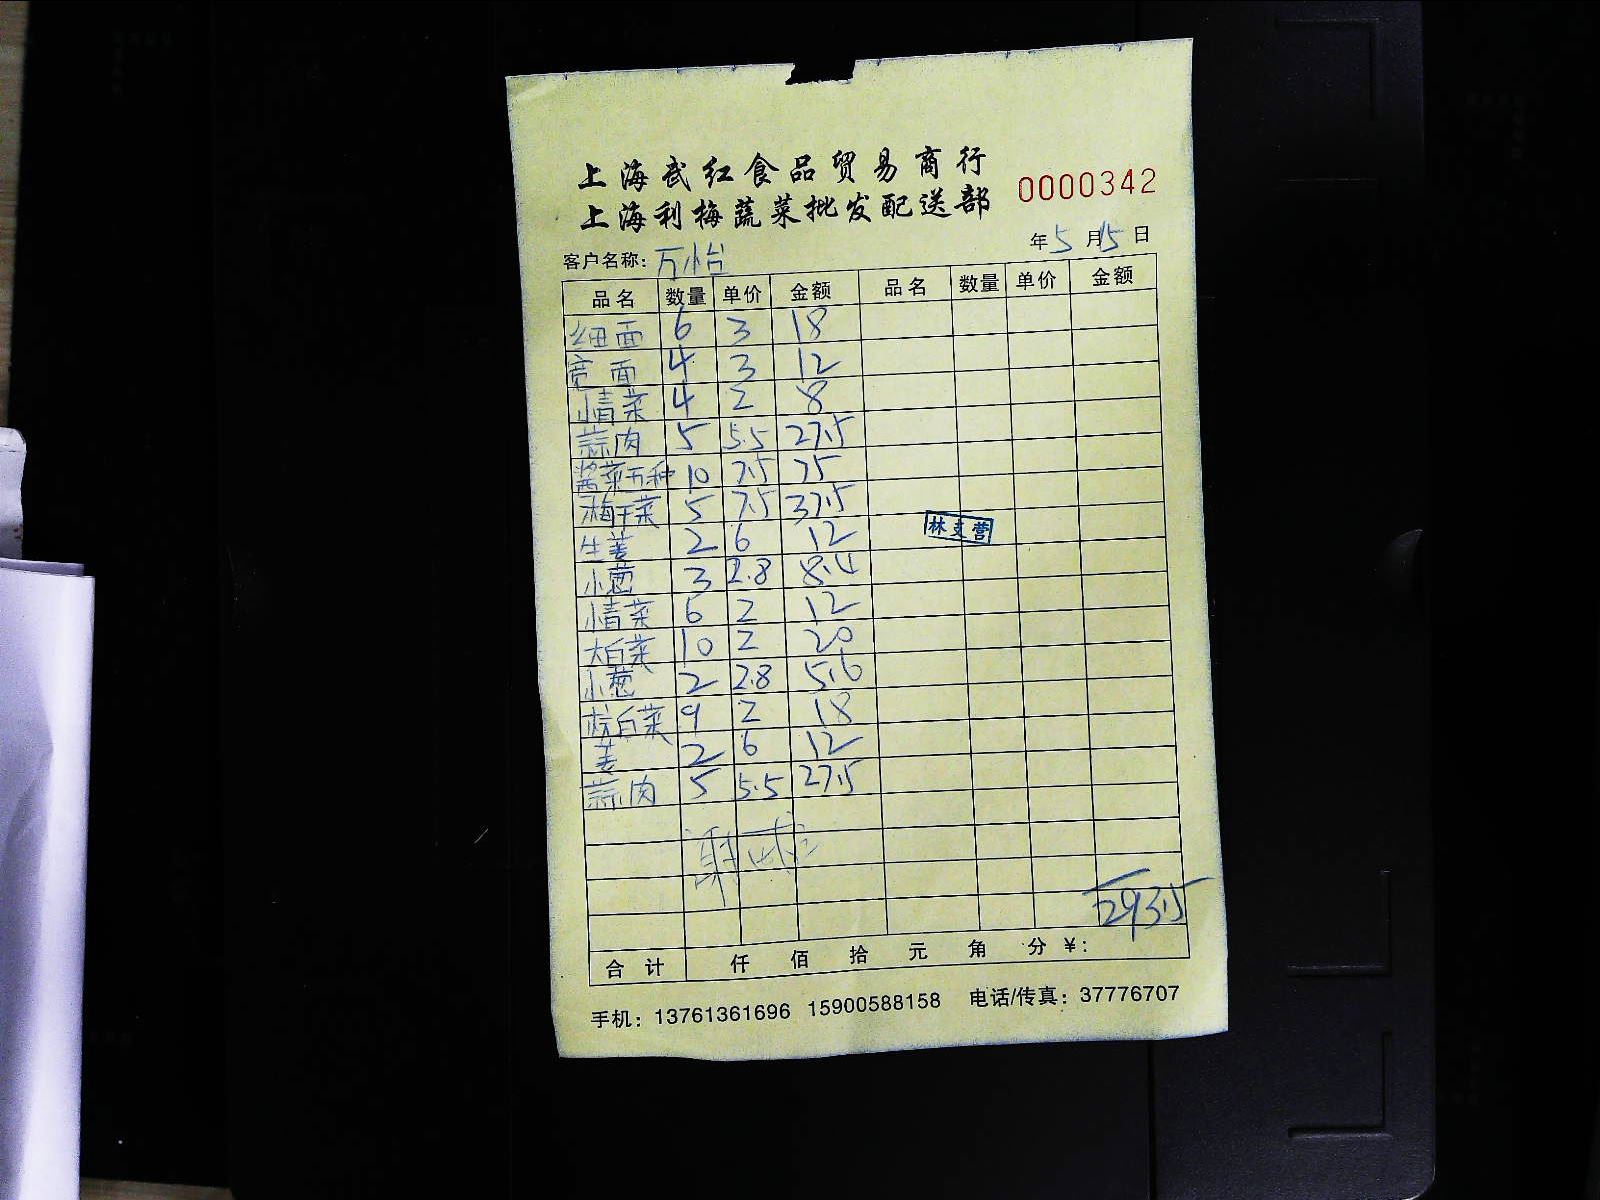 上海武红食品贸易商行
上海利梅蔬菜批发配送部
0000342
年5月15日
客户名称: 万怡
品名 数量 单价 金额 品名 数量 单价 金额
细面 6 3 18
宽面 4 3 12
情菜 4 2 8
蒜肉 5 5.5 27.5
酱菜五种 10 7.5 75
梅干菜 5 7.5 37.5
生姜 2 6 12
小葱 3 2.8 8.4
情菜 6 2 12
大白菜 10 2 20
小葱 2 2.8 5.6
杭白菜 9 2 18
姜 2 6 12
蒜肉 5 5.5 27.5
林支营
谢
293.5
合计 仟 佰 拾 元 角 分 ¥:
手机: 13761361696 15900588158 电话/传真: 37776707